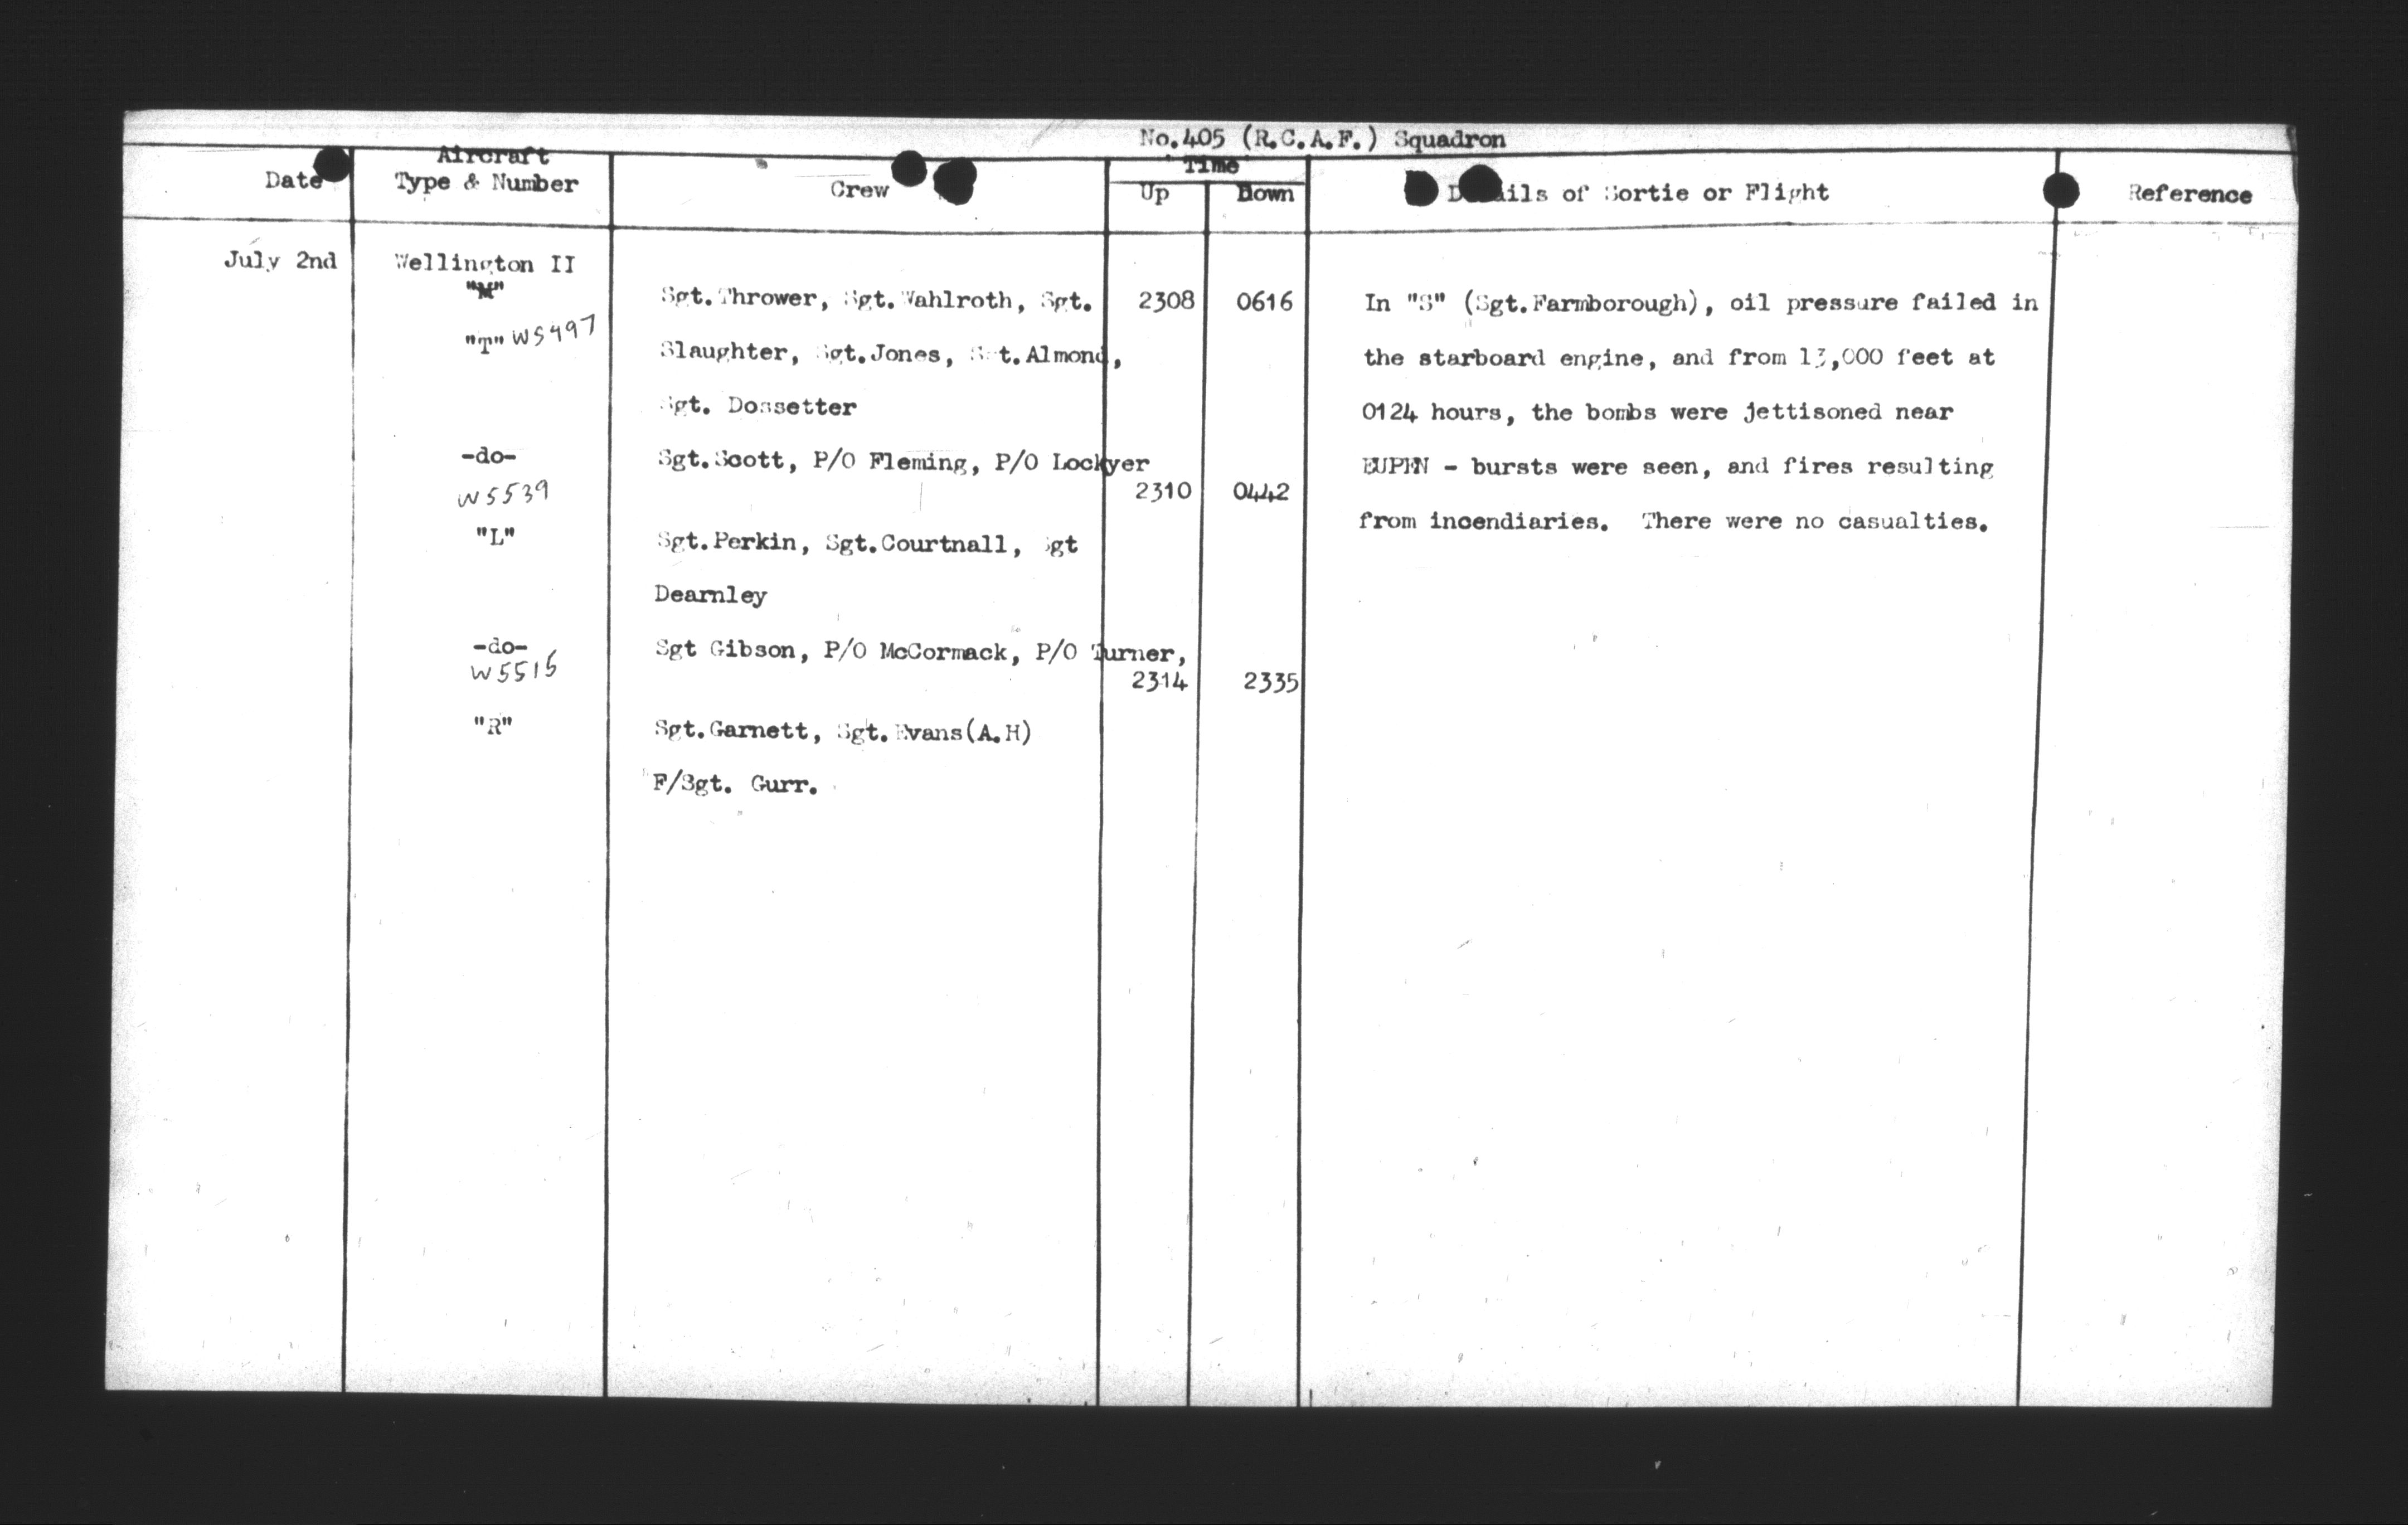 No.405 (R.C.A.F.) Squadron
Date
Aircraft
Type & Number
Crew
Time
Up
Down
Details of Sortie or Flight
Reference
July 2nd
Wellington II
"M"
"T" W5497
Sgt.Thrower, Sgt.Wahlroth, Sgt.
Slaughter, Sgt.Jones, Sgt.Almond,
Sgt. Dossetter
2308
0616
In "S" (Sgt.Farmborough), oil pressure failed in
the starboard engine, and from 13,000 feet at
0124 hours, the bombs were jettisoned near
EUPEN - bursts were seen, and fires resulting
from incendiaries. There were no casualties.
-do-
W5539
"L"
Sgt.Scott, P/O Fleming, P/O Lockyer
2310
0442
Sgt.Perkin, Sgt.Courtnall, Sgt
Dearnley
-do-
W5515
"R"
Sgt Gibson, P/O McCormack, P/O Turner,
2314
2335
Sgt.Garnett, Sgt.Evans(A.H)
F/Sgt. Gurr.